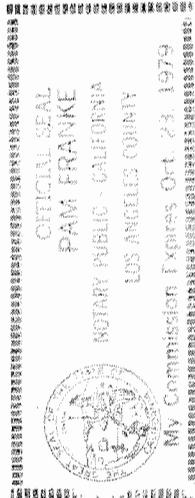 OFFICIAL SEAL
PAM FRANKE
NOTARY PUBLIC - CALIFORNIA
LOS ANGELES COUNTY
My Commission Expires Oct. 23, 1979